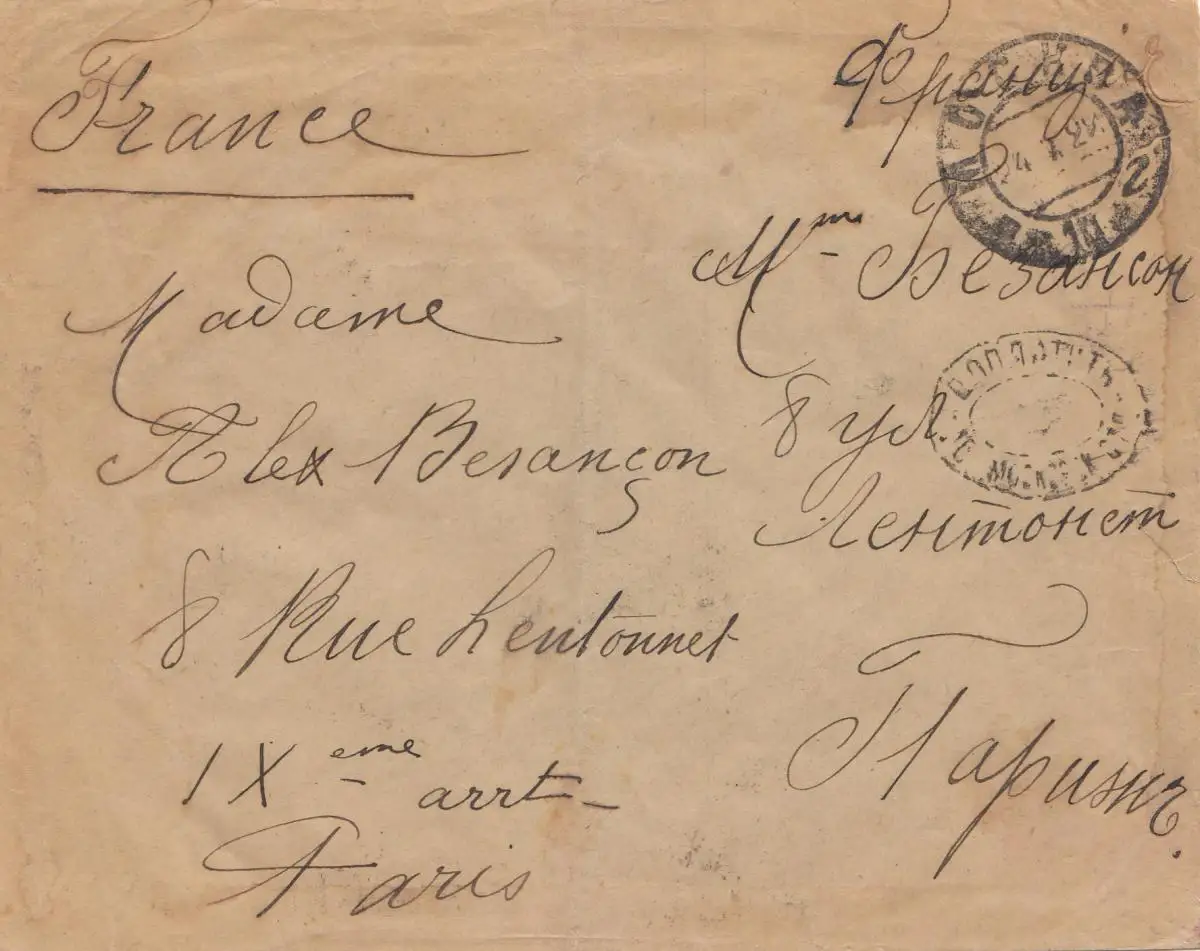 France
Madame
Alex Besançon
8 Rue Lentonnet
IX eme arrt
Paris
Франція
Mme Безансон
8 ул
Лентонет
Парижъ.
ДОПЛАТИТЬ